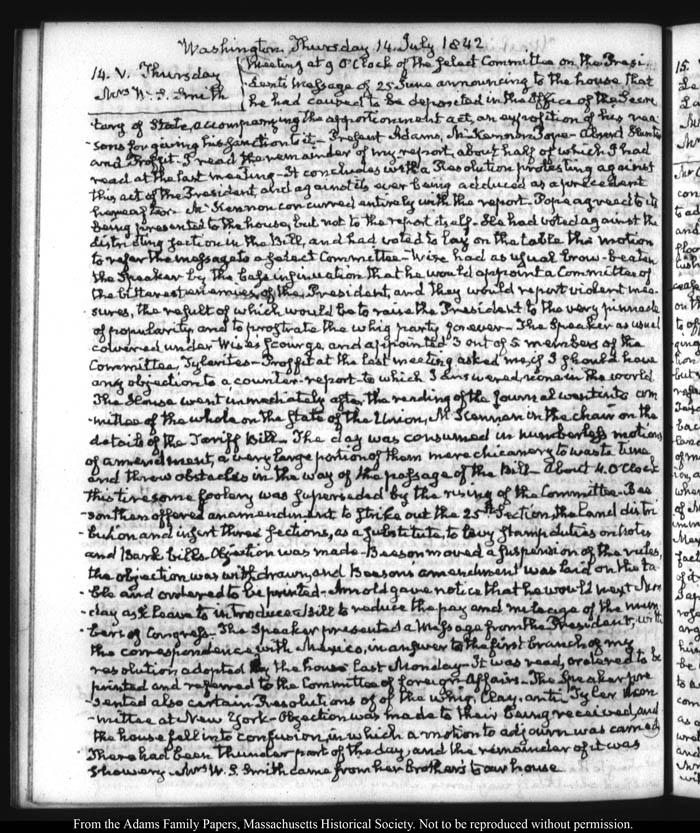 Washington Thursday 14. July 1842
14. V. Thursday
Mrs W. S. Smith
Meeting at 9 O'Clock of the Select Committee on the Presi-
dents Message of 25 June announcing to the house that
he had caused to be deposited in the Office of the Secre
tary of State, accompanying the apportionment act, an exposition of his rea
-sons for giving his sanction to it- Present Adams, McKennon Pope- Aband Hunter
and Proffit. I read the remainder of my report, about half of which I had
read at the last meeting- It concludes with a Resolution protesting against
this act of the President, and against its ever being adduced as a precedent
hereafter- McKennon concurred entirely with the report- Pope agreed to its
being presented to the house, but not to the report itself- He had voted against the
districting section in the Bill, and had voted to lay on the table the motion
to refer the message to a Select Committee- Wise had as usual brow-beaten
the Speaker by the base insinuation that he would appoint a Committee of
the bitterest enemies of the President, and they would report violent mea-
sures, the result of which would be to raise the President to the very pinnacle
of popularity and to prostrate the whig party forever- The Speaker as usual
cowered under Wise's scourge, and appointed 3 out of 5 members of the
Committee, Tylerites- Proffit at the last meeting asked me, if I should have
any objection to a counter-report- to which I answered, none in the world
The House went immediately after the reading of the Journal went into com
-mittee of the whole on the State of the Union, McKennan in the chair on the
details of the Tariff Bill- The day was consumed in numberless motions
of amendment, a very large portion of them mere chicanery to waste time
and throw obstacles in the way of the passage of the Bill- About 4. O'Clock
this tiresome foolery was superseded by the rising of the Committee- Bee
son then offered an amendment to strike out the 25th Section, the land distri
-bution and insert three sections, as a substitute, to levy stamp duties on notes
and Bank bills- Objection was made- Beeson moved a suspension of the rules,
the objection was withdrawn, and Beeson's amendment was laid on the ta
-ble and ordered to be printed- Arnold gave notice that he would next Mon
-day ask leave to introduce a Bill to reduce the pay and mileage of the mem
-bers of Congress- The Speaker presented a Message from the President, with
the correspondence with Mexico, in answer to the first branch of my
resolution adopted by the house last Monday- It was read, ordered to be
printed and referred to the Committee of foreign Affairs- The Speaker pre
-sented also certain Resolutions of of the whig, Clay, anti Tyler Com
-mittee at New York- Objection was made to their being received, and
the house fell into confusion, in which a motion to adjourn was carried
There had been thunder part of the day, and the remainder of it was
showery- Mrs W. S. Smith came from her brother's to our house
From the Adams Family Papers, Massachusetts Historical Society. Not to be reproduced without permission.